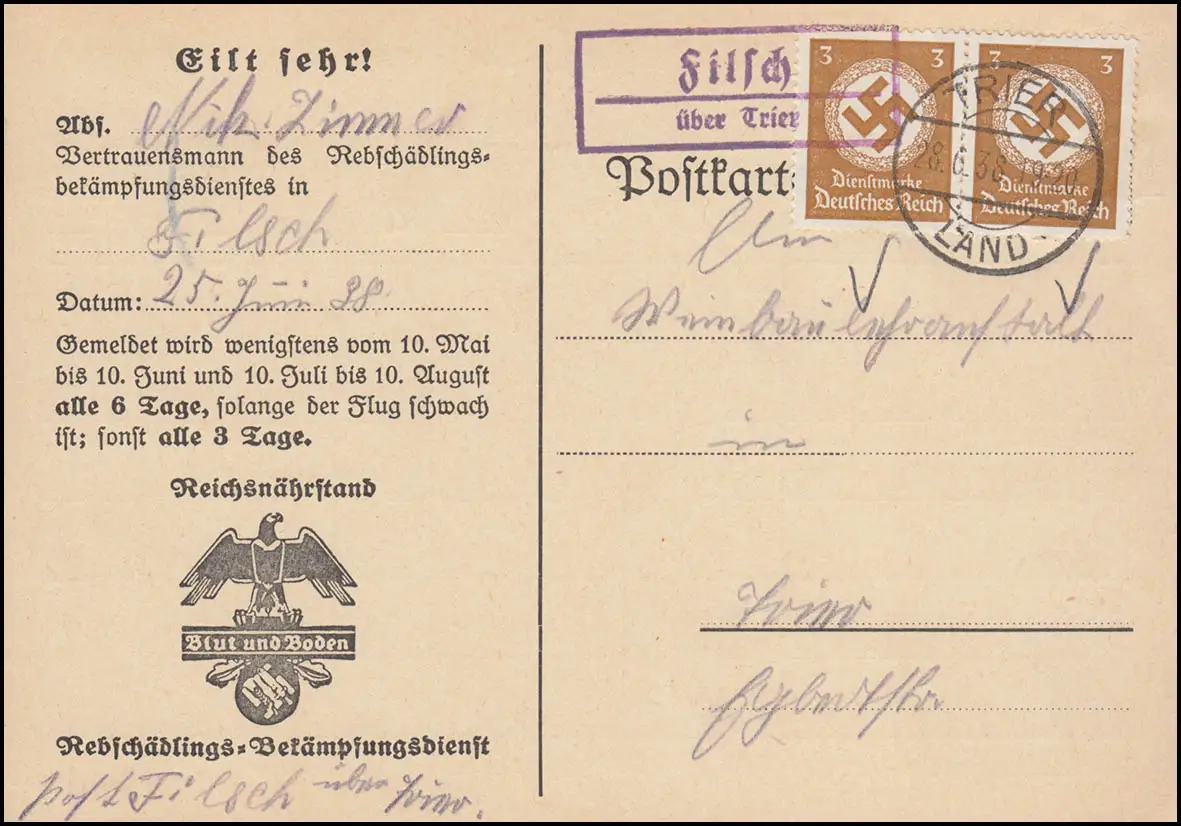 Eilt sehr!
Abs. Nik. Zimmer
Vertrauensmann des Rebschädlings-
bekämpfungsdienstes in
Filsch
Datum: 25. Juni 38.
Gemeldet wird wenigstens vom 10. Mai
bis 10. Juni und 10. Juli bis 10. August
alle 6 Tage, solange der Flug schwach
ist; sonst alle 3 Tage.
Reichsnährstand
Blut und Boden
Rebschädlings-Bekämpfungsdienst
Post Filsch über Trier.
Filsch
über Trier
3 3 3
Dienstmarke
Deutsches Reich
Dienstmarke
Deutsches Reich
TRIER
28.6.38
LAND
Postkart
An
Weinbaulehranstalt
in
Trier
Egbertstr